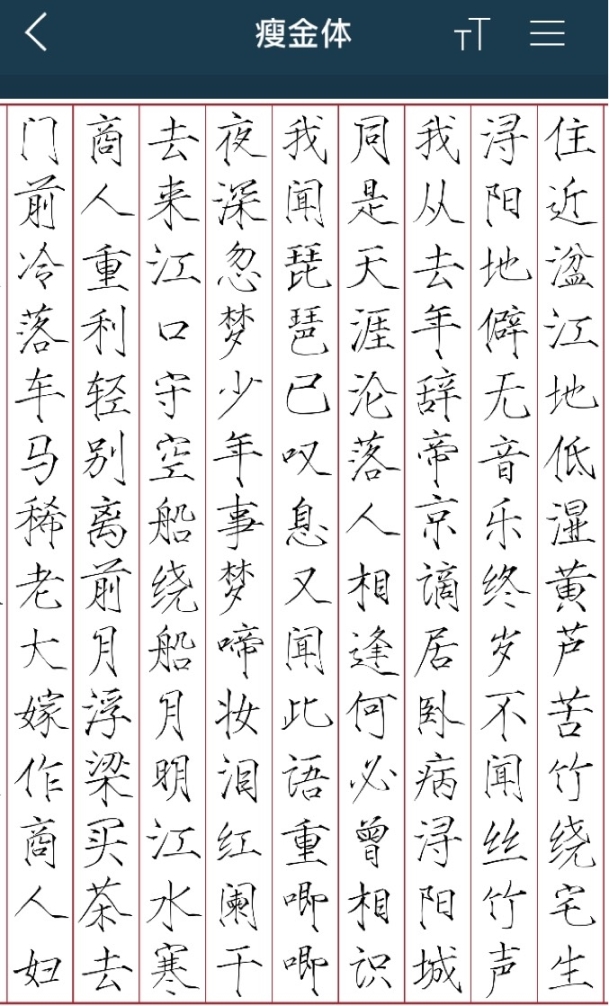 瘦金体
门前冷落车马稀老大嫁作商人妇
商人重利轻别离前月浮梁买茶去
去来江口守空船绕船月明江水寒
夜深忽梦少年事梦啼妆泪红阑干
我闻琵琶已叹息又闻此语重唧唧
同是天涯沦落人相逢何必曾相识
我从去年辞帝京谪居卧病浔阳城
浔阳地僻无音乐终岁不闻丝竹声
住近湓江地低湿黄芦苦竹绕宅生